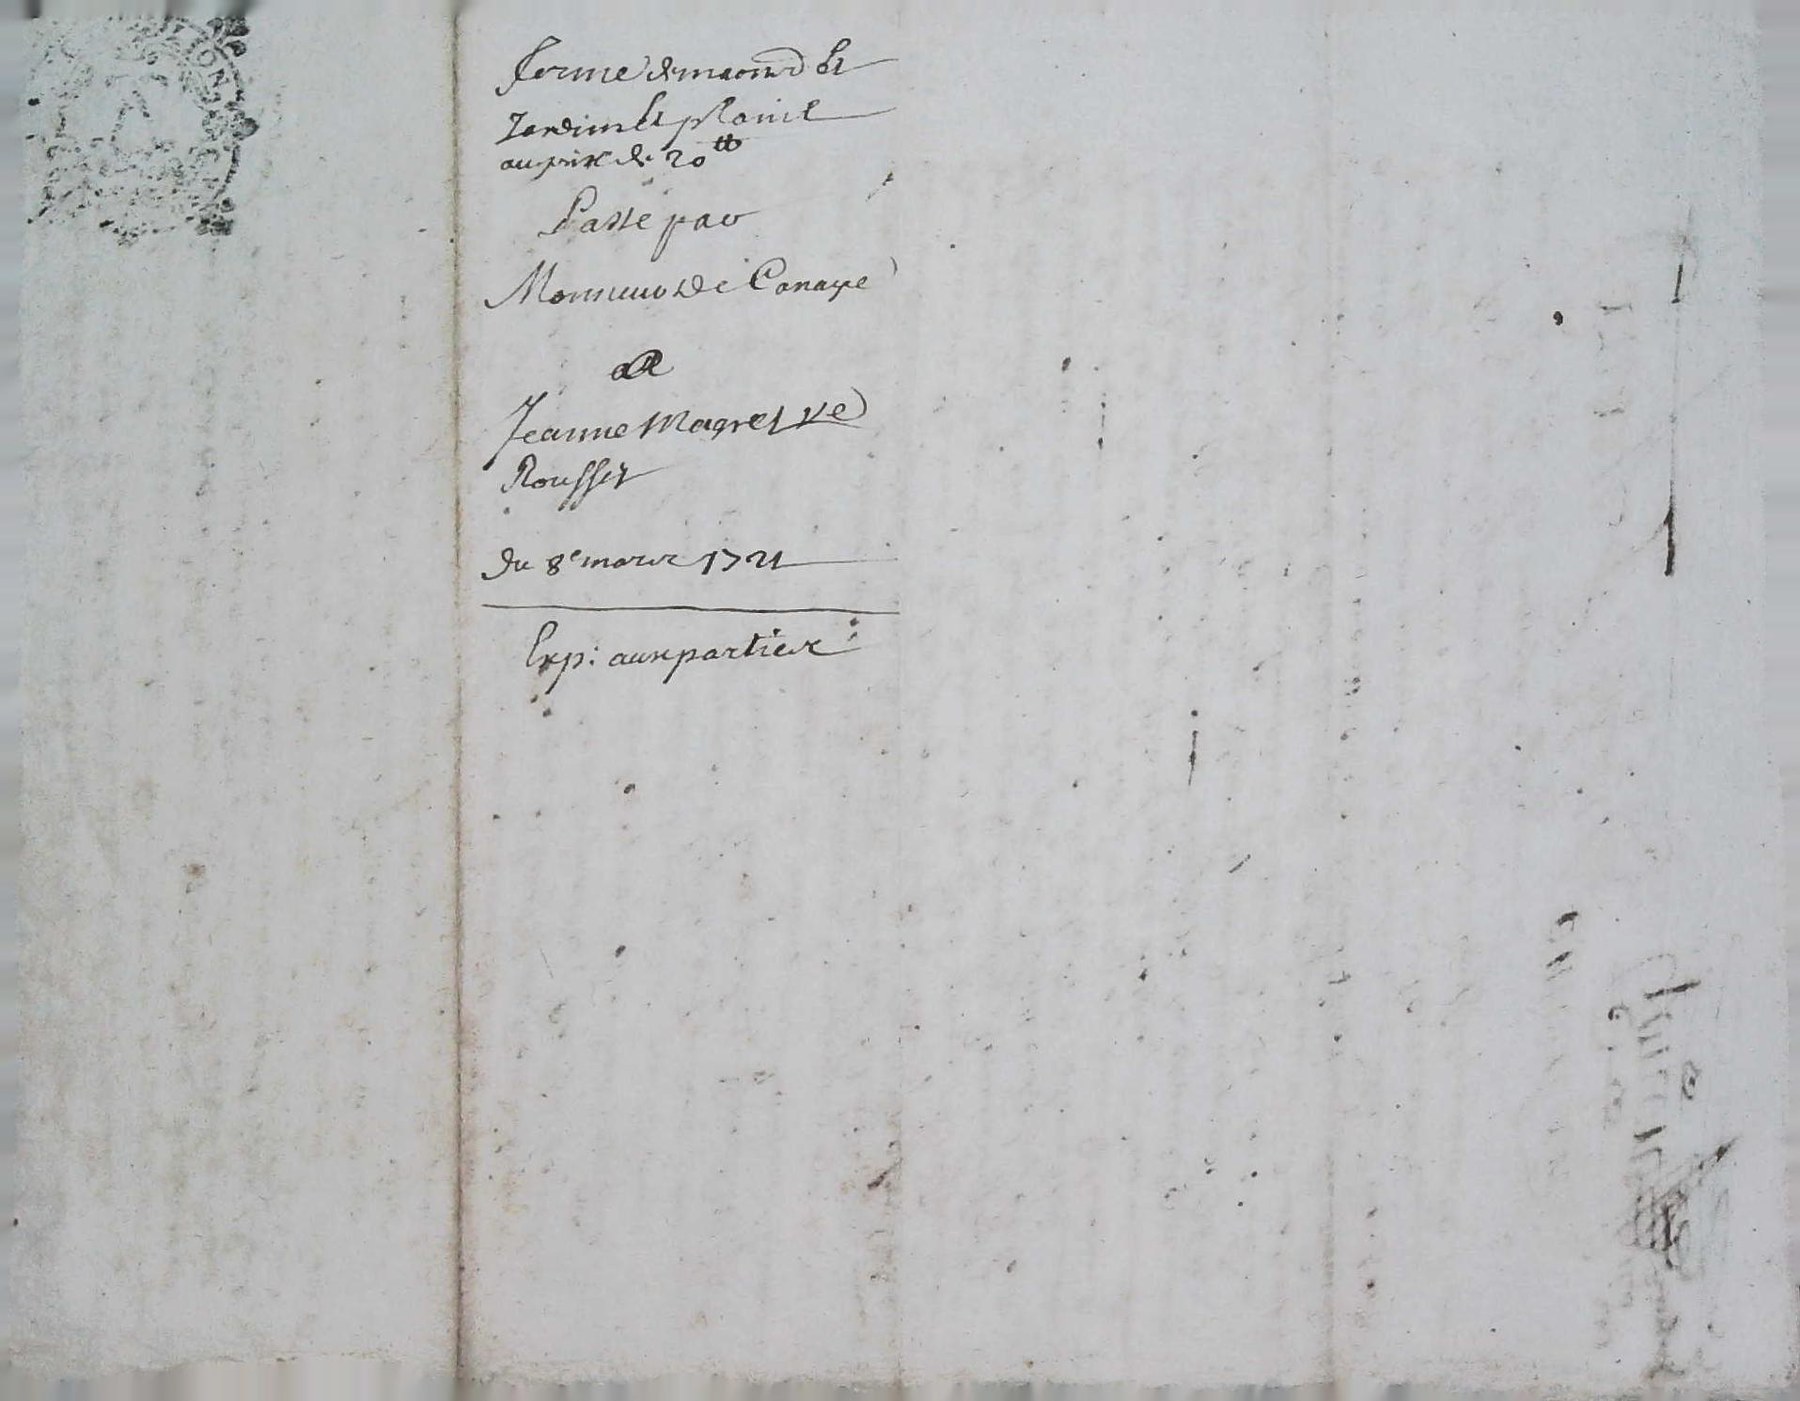 ferme de maison Et
Jardin Et plain
au prix de 20  tt
Passé par
Monsieur de Canaye
a
Jeanne Magret ve
Rousset
du 8e mars 1721
Exp: aux parties